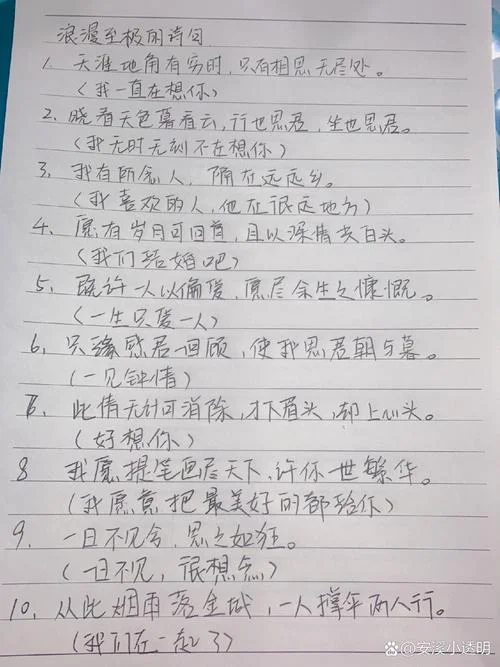 浪漫至极的诗句
1. 天涯地角有穷时，只有相思无尽处。
(我一直在想你)
2. 晓看天色暮看云，行也思君，坐也思君。
(我无时无刻不在想你)
3. 我有所念人，隔在远远乡。
(我喜欢的人，他在很远地方)
4. 愿有岁月可回首，且以深情共白头。
(我们结婚吧)
5. 既许一人以偏爱，愿尽余生之慷慨。
(一生只爱一人)
6. 只缘感君一回顾，使我思君朝与暮。
(一见钟情)
7. 此情无计可消除，才下眉头，却上心头。
(好想你)
8 我愿提笔画尽天下，许你一世繁华。
(我愿意把最美好的都给你)
9. 一日不见兮，思之如狂。
(一日不见，很想念)
10. 从此烟雨落金城，一人撑伞两人行。
(我们在一起了)
@安溪小透明